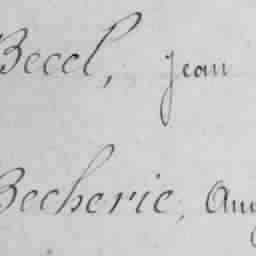 Becel, Jean
Becherie,